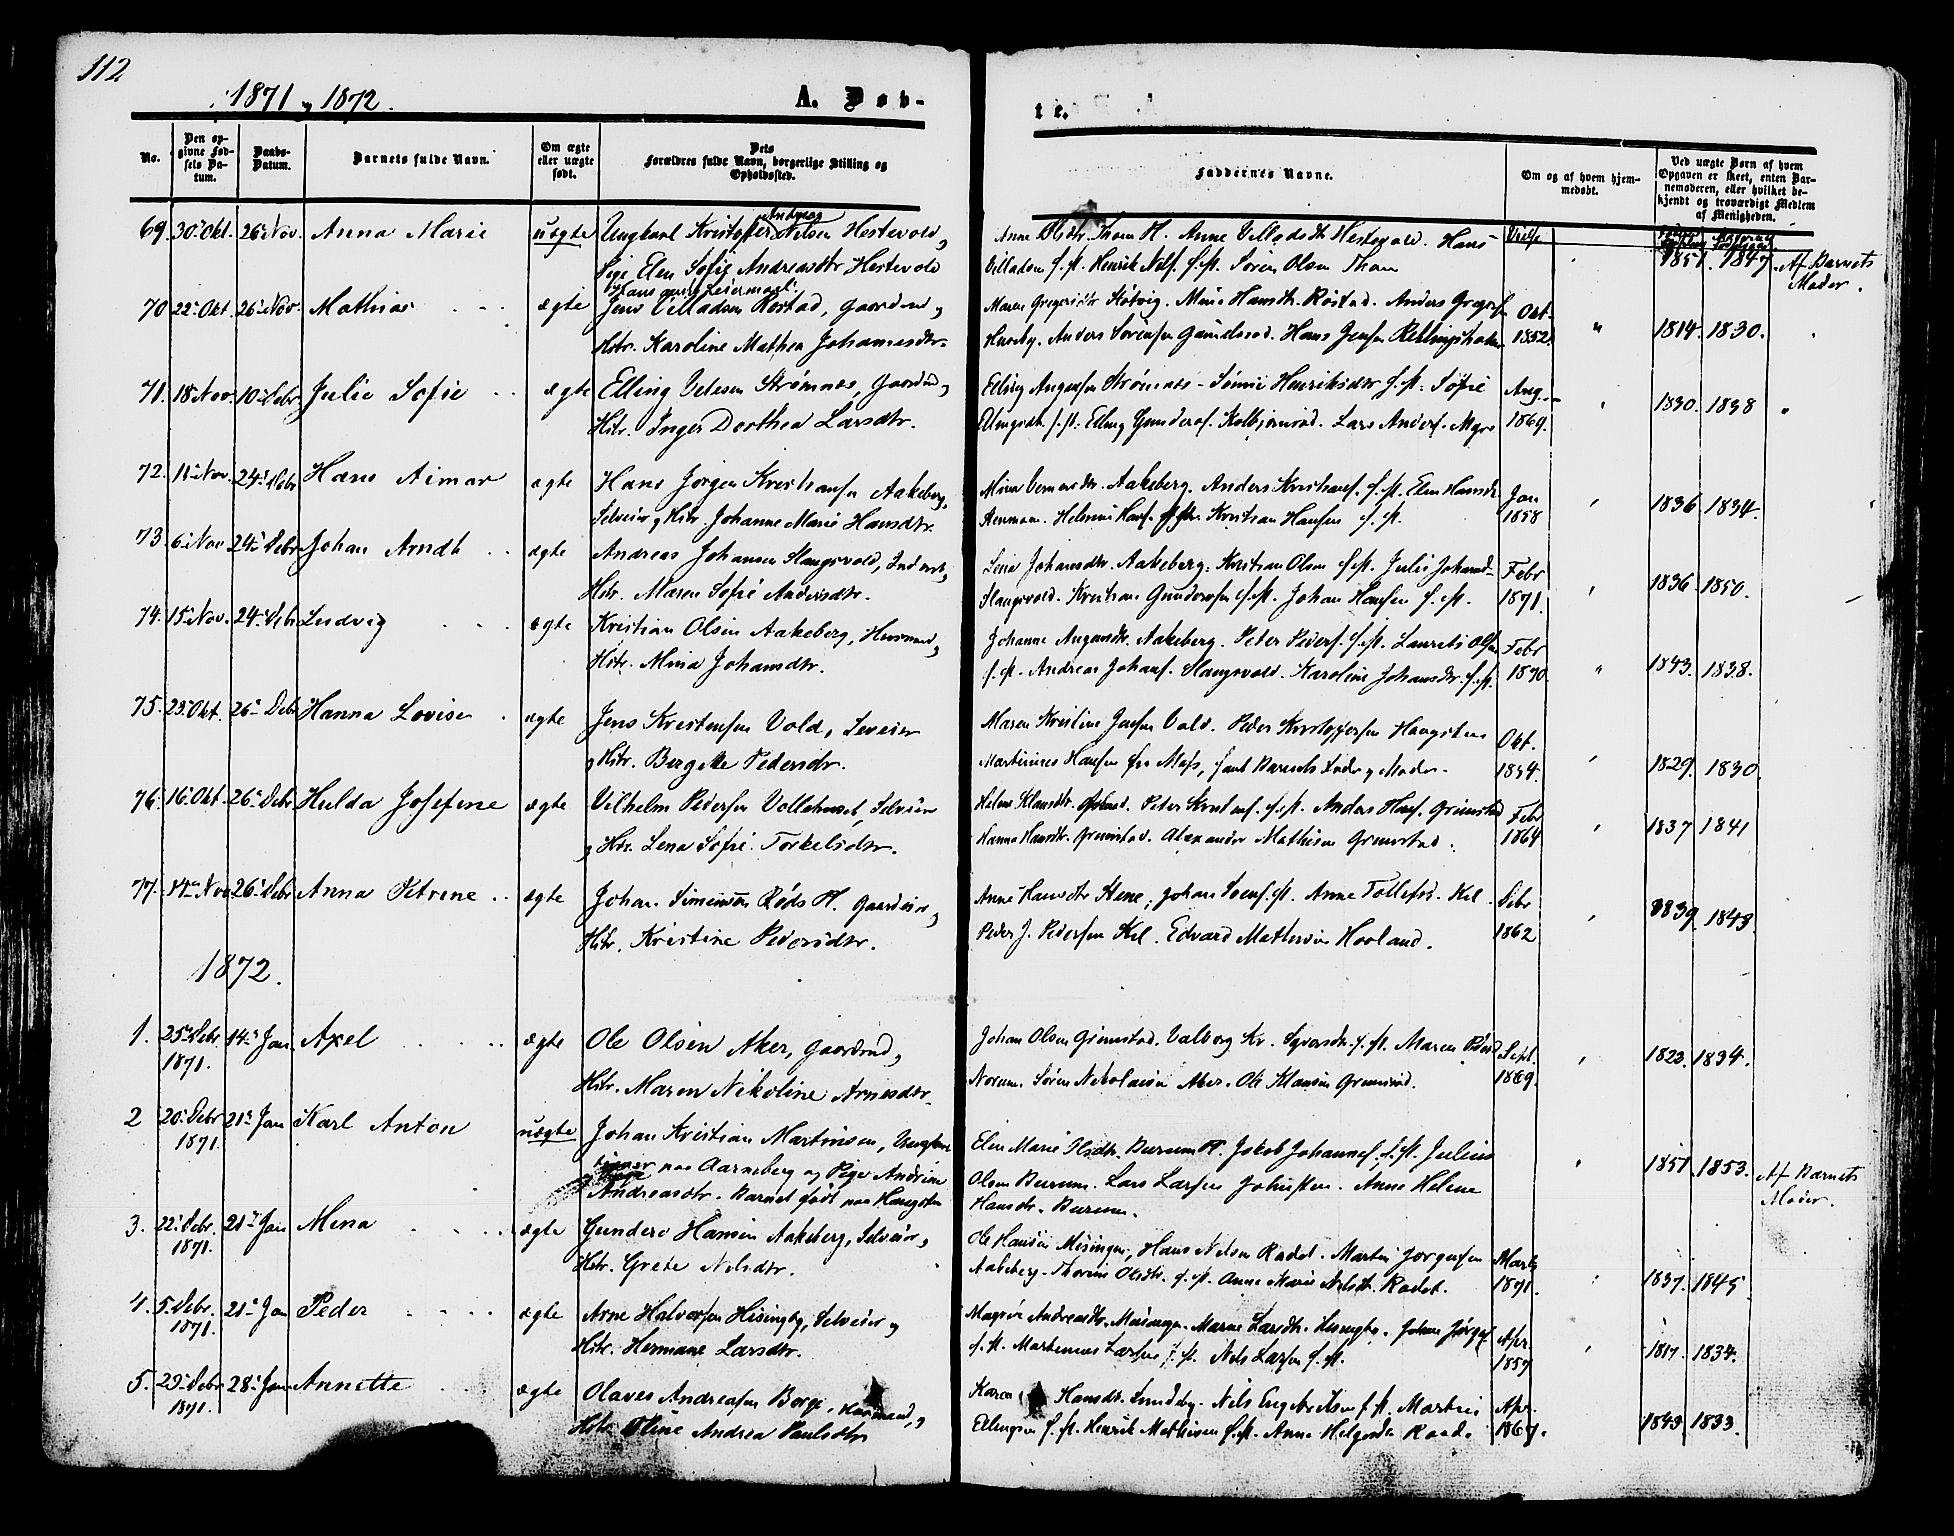 112
1871 og 1872.
A. Døb-
te.
No.
Den opgivne Fødsels Datum.
Daabs-Datum.
Barnets fulde Navn.
Om ægte eller uægte født.
Dets Forældres fulde Navn, borgerlige Stilling og Opholdssted.
Faddernes Navne.
Om og af hvem hjemmedøbt.
Ved uægte Børn af hvem Opgaven er skeet, enten Barnemoderen, eller hvilket bekjendt og troværdigt Medlem af Menigheden.
69 30 Okt. 26 Nov. Anna Marie uægte Ungkarl Kristoffer Andreas Nilsen Hestevold,
Pige Elen Sofie Andreasdtr Hestevold
Anne Olsdtr. Thom H. Anne Villadsdtr Hestevold. Hans
Villadsen s.st. Henrik Nils. s.st. Søren Olsen Thom
1851. 1847. Af Barnets Moder.
70 22 Okt 26 Nov. Mathias ægte Jens Villadsen Rostad, Gaardmd og
Hstr. Karoline Mathea Johannesdtr.
Maren Gregersdtr Støtvig. Mina Hansdtr. Rostad. Anders Gregers.
Huseby. Anders Sørensen Gunildsrod. Hans Jensen
Okt. 1852. " 1814. 1830.
71. 18 Nov. 10 Debr Julie Sofie ægte Elling Velesen Strømnæs, Gaardmd og
Hstr. Inger Dorthea Larsdtr.
Elling Augensen Strømnæs - Sønnie Henriksdtr s.st. Sofie
Ellingsdtr. s.st. Elling Gundersen. Kolbjørnsrod. Lars Anders.
Aug. 1869. 1830. 1838
72. 11 Nov. 24 Debr Hans Aimar ægte Hans Jørgen Kristiansen Aakeberg,
Selveier og Hstr. Johanne Marie Hansdtr.
Aakeberg. Anders Kristians. s.st. Elen Hansdtr.
Stenmoen. Helmine Hans. s.st. Kristian Hansen s.st.
Jan 1858 1836 1834.
73. 6 Nov 24 Debr Johan Arndt ægte Andreas Johansen Slangsvold, Inderst,
Hstr. Maren Sofie Andersdtr.
Lina Johansdtr. Aakeberg. Kristian Olsen s.st. Julie Johansd.
Slangsvold. Kristian Gundersen s.st. Johan Hansen s.st.
Febr 1871. 1836 1850.
74. 15 Nov. 24 Debr Ludvig ægte Kristian Olsen Aakeberg, Husmand,
Hstr. Mina Johansdtr.
Johanne Augensdtr. Aakeberg. Peter Peders. s.st. Laurits Olsen
s.st. Andreas Johans. Slangsvold. Karoline Johansdtr. s.st.
Febr 1870. " 1843. 1838.
75. 23 Okt. 26 Debr Hanna Lovise ægte Jens Kristensen Vold, Selveier
og Hstr. Bergitte Pedersdtr.
Maren Kristine Jensen Vold. Peder Kristoffersen Haugsten
Martinius Hansen fra Moss, samt Barnets Fader og Moder.
Okt. 1854. 1829. 1830
76. 16 Okt. 26 Debr Hulda Josefine ægte Vilhelm Pedersen Vollehuset, Selveier
og Hstr. Lena Sofie Torkelsdtr.
Helene Klausdtr. Peter Kristens. s.st. Anders Hans. Grimstad
Hanna Hansdtr. Grimstad. Alexander Mathisen Grimstad.
Febr 1864 1837 1841
77. 14 Nov 26 Debr Anna Petrine ægte Johan Simensen Røds H. Gaardeier,
Hstr. Kristine Pedersdtr.
Anne Hansdtr Stene, Johan s.st. Anne Tollefsd. Kil.
Peder J. Pedersen Kil. Edvard Mathisen Hooland.
Debr 1862 1839 1843.
1872.
1. 25 Debr 1871. 14 Jan. Axel ægte Ole Olsen Aker, Gaardmd,
Hstr. Maren Nikoline Arnesdtr.
Johan Olsen Grimstad. Valborg Kr. s.st. Maren
Norum. Søren Nikolaisen Aker. Ole Klausen Grimsrød.
Sept. 1869. 1823. 1834.
2 20 Debr 1871. 21 Jan Karl Anton uægte Johan Kristian Martinsen, Ungkar
paa Aarneberg og Pige Andrine
Andreasdtr. Barnet født paa Haugsten
Elen Marie Hsdtr. Burum H. Jakob Johannes. s.st. Julius
Olsen Burum. Lars Larsen Anne Helene
Hansdtr. Burum.
" 1851 1853. Af Barnets Moder.
3. 22 Debr. 1871. 21 Jan Mina ægte Gundero Hansen Aakeberg, Selveier,
Hstr. Grete Nilsdtr.
Ole Hansen Missingen, Hans Nilsen Rødet. Martin Jørgensen
Aakeberg. Thorine Olsdtr. s.st. Anne Marie Nilsdtr. Rødet.
Marts 1871. 1837. 1845.
4. 5 Debr. 1871. 21 Jan Peder ægte Arne Halvorsen Hisingby, Selveier og
Hstr. Hermane Larsdtr.
Andreasdtr. Maren Larsdtr. Johan
s.st. Martinius Larsen s.st. Nils Larsen s.st.
Apr. 1857 1817. 1834.
5. 29 Debr 1871. 28 Jan Annette ægte Olaves Andreasen Borge, Husmand, og
Hstr Oline Andrea Paulsdtr
Karen Hansdtr. Lundeby. Nils Engebretsen s.st. Martin
Ellingsen s.st. Henrik Mathisen s.st. Anne Helgesdtr Raade
Apr. 1867. 1843 1833.